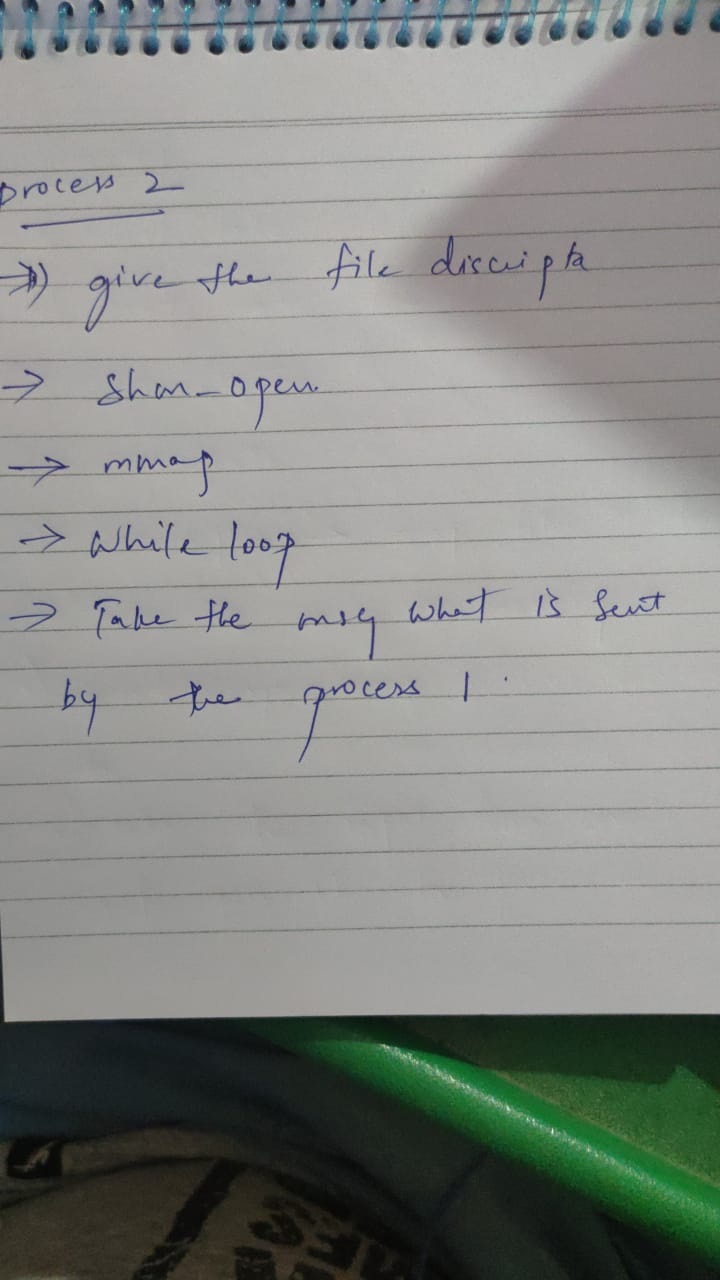 Process 2
→ give the file discripta
→ Shm_open
→ mmap
→ While loop
→ Take the msg what is sent
by the process 1.